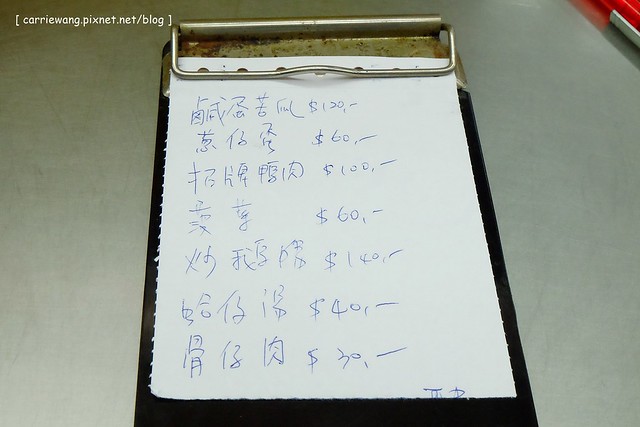 [ carriewang.pixnet.net/blog ]
鹹蛋苦瓜 $120.-
蔥仔蛋 $60.-
招牌鴨肉 $100.-
$60.-
炒鵝腸 $140.-
蛤仔湯 $40.-
骨仔肉 $30.-